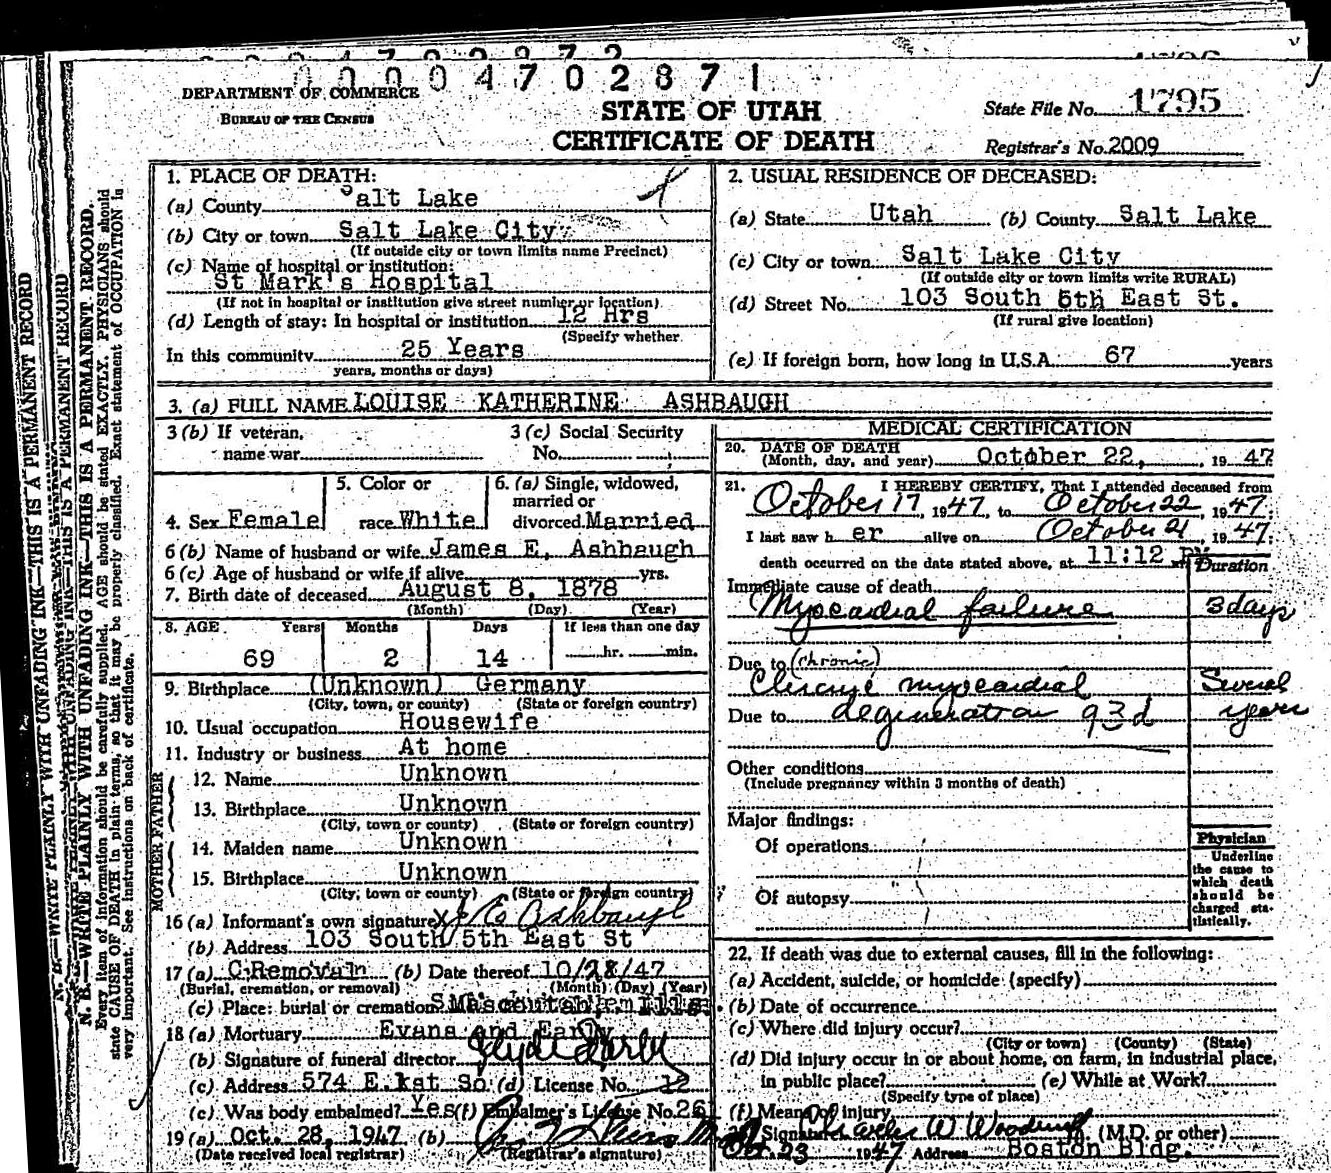 00004702871
DEPARTMENT OF COMMERCE
BUREAU OF THE CENSUS
STATE OF UTAH
CERTIFICATE OF DEATH
State File No. 1795
Registrar's No. 2009
N. B.—WRITE PLAINLY WITH UNFADING INK—THIS IS A PERMANENT RECORD.
Every item of information should be carefully supplied. AGE should be stated EXACTLY. PHYSICIANS should
state CAUSE OF DEATH in plain terms, so that it may be properly classified. Exact statement of OCCUPATION is
very important. See instructions on back of certificate.
1. PLACE OF DEATH:
(a) County Salt Lake
(b) City or town Salt Lake City
(If outside city or town limits name Precinct)
(c) Name of hospital or institution:
St Mark's Hospital
(If not in hospital or institution give street number or location)
(d) Length of stay: In hospital or institution 12 Hrs
(Specify whether
In this community 25 Years
years, months or days)
2. USUAL RESIDENCE OF DECEASED:
(a) State Utah (b) County Salt Lake
(c) City or town Salt Lake City
(If outside city or town limits write RURAL)
(d) Street No. 103 South 5th East St.
(If rural give location)
(e) If foreign born, how long in U.S.A. 67 years
3. (a) FULL NAME LOUISE KATHERINE ASHBAUGH
3 (b) If veteran, name war
3 (c) Social Security No.
4. Sex Female
5. Color or race White
6. (a) Single, widowed, married or divorced Married
6 (b) Name of husband or wife James E. Ashbaugh
6 (c) Age of husband or wife if alive yrs.
7. Birth date of deceased August 8, 1878
(Month) (Day) (Year)
8. AGE Years Months Days If less than one day
69 2 14 hr. min.
9. Birthplace (Unknown) Germany
(City, town, or county) (State or foreign country)
10. Usual occupation Housewife
11. Industry or business At home
FATHER
12. Name Unknown
13. Birthplace Unknown
(City, town or county) (State or foreign country)
MOTHER
14. Maiden name Unknown
15. Birthplace Unknown
(City, town or county) (State or foreign country)
16 (a) Informant's own signature J E Ashbaugh
(b) Address 103 South 5th East St
17 (a) Removal (b) Date thereof 10/28/47
(Burial, cremation, or removal) (Month) (Day) (Year)
(c) Place: burial or cremation Mascoutah, Ills.
18 (a) Mortuary Evans and Early
(b) Signature of funeral director Clyde Early
(c) Address 574 E. 1st So (d) License No. 12
(e) Was body embalmed? Yes (f) Embalmer's License No. 261
19 (a) Oct. 28, 1947 (b)
(Date received local registrar) (Registrar's signature)
MEDICAL CERTIFICATION
20. DATE OF DEATH
(Month, day, and year) October 22, 1947
21. I HEREBY CERTIFY, That I attended deceased from
October 17, 1947, to October 22, 1947;
I last saw her alive on October 21, 1947;
death occurred on the date stated above, at 11:12 PM
Duration
Immediate cause of death
Myocardial failure 3 days
Due to (chronic)
myocardial Several
Due to degeneration 93d years
Other conditions
(Include pregnancy within 3 months of death)
Major findings:
Of operations
Of autopsy
Physician
Underline
the cause to
which death
should be
charged sta-
tistically.
22. If death was due to external causes, fill in the following:
(a) Accident, suicide, or homicide (specify)
(b) Date of occurrence
(c) Where did injury occur?
(City or town) (County) (State)
(d) Did injury occur in or about home, on farm, in industrial place,
in public place? (e) While at Work?
(Specify type of place)
(f) Means of injury
Signature Charles W Woodruff (M.D. or other)
Oct. 23 1947 Address Boston Bldg.